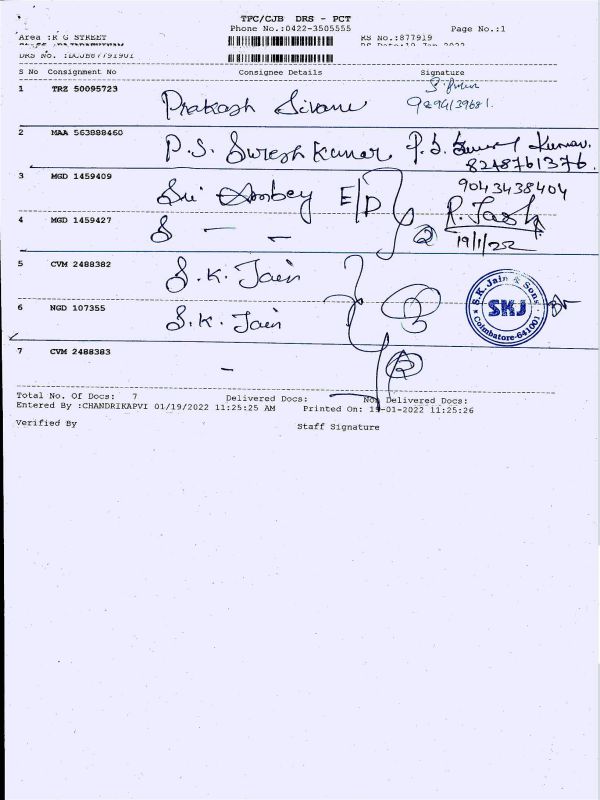 TPC/CJB DRS - PCT
Phone No.:0422-3505555 Page No.:1
Area :R G STREET RS No.:877919
DRS No. :DCJB87791901
S No Consignment No Consignee Details Signature
1 TRZ 50095723 Prakash
2 MAA 563888460 P.S. Suresh Kumar P.S. Kumar.
8248761376.
3 MGD 1459409 Sri Ambey E/D 9043438404
4 MGD 1459427 S - - 2 19/1/22
5 CVM 2488382 S.K. Jain
S.K. Jain & Sons
SKJ
Coimbatore-641001
6 NGD 107355 S.K. Jain 3
7 CVM 2488383 -
Total No. Of Docs: 7 Delivered Docs: Non Delivered Docs:
Entered By :CHANDRIKAPVI 01/19/2022 11:25:25 AM Printed On: 19-01-2022 11:25:26
Verified By Staff Signature